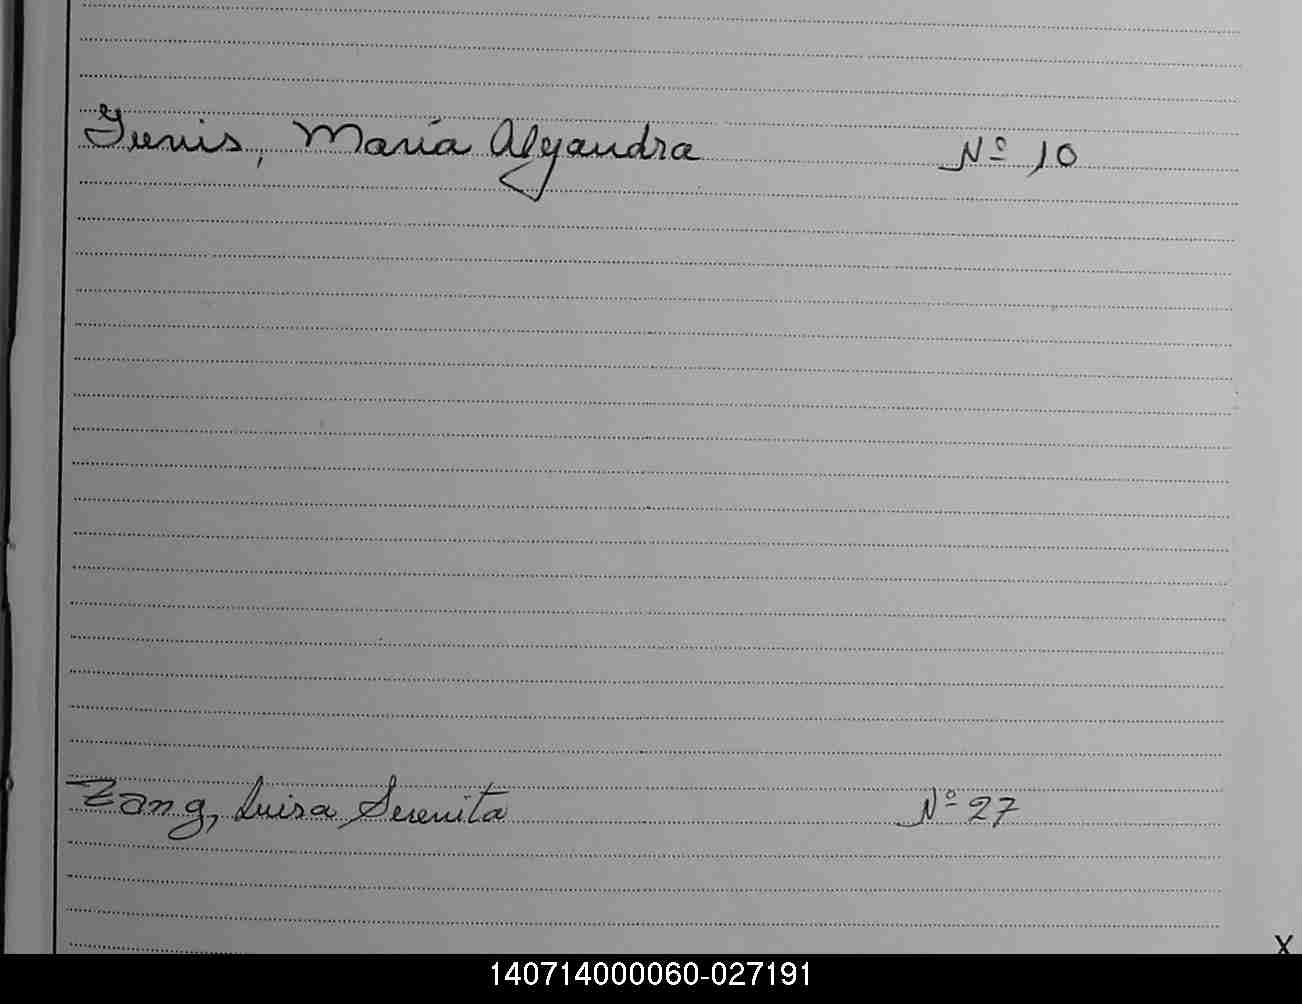 María Alejandra Nº 10
Zang, Luisa Serenita Nº 27
X
140714000060-027191